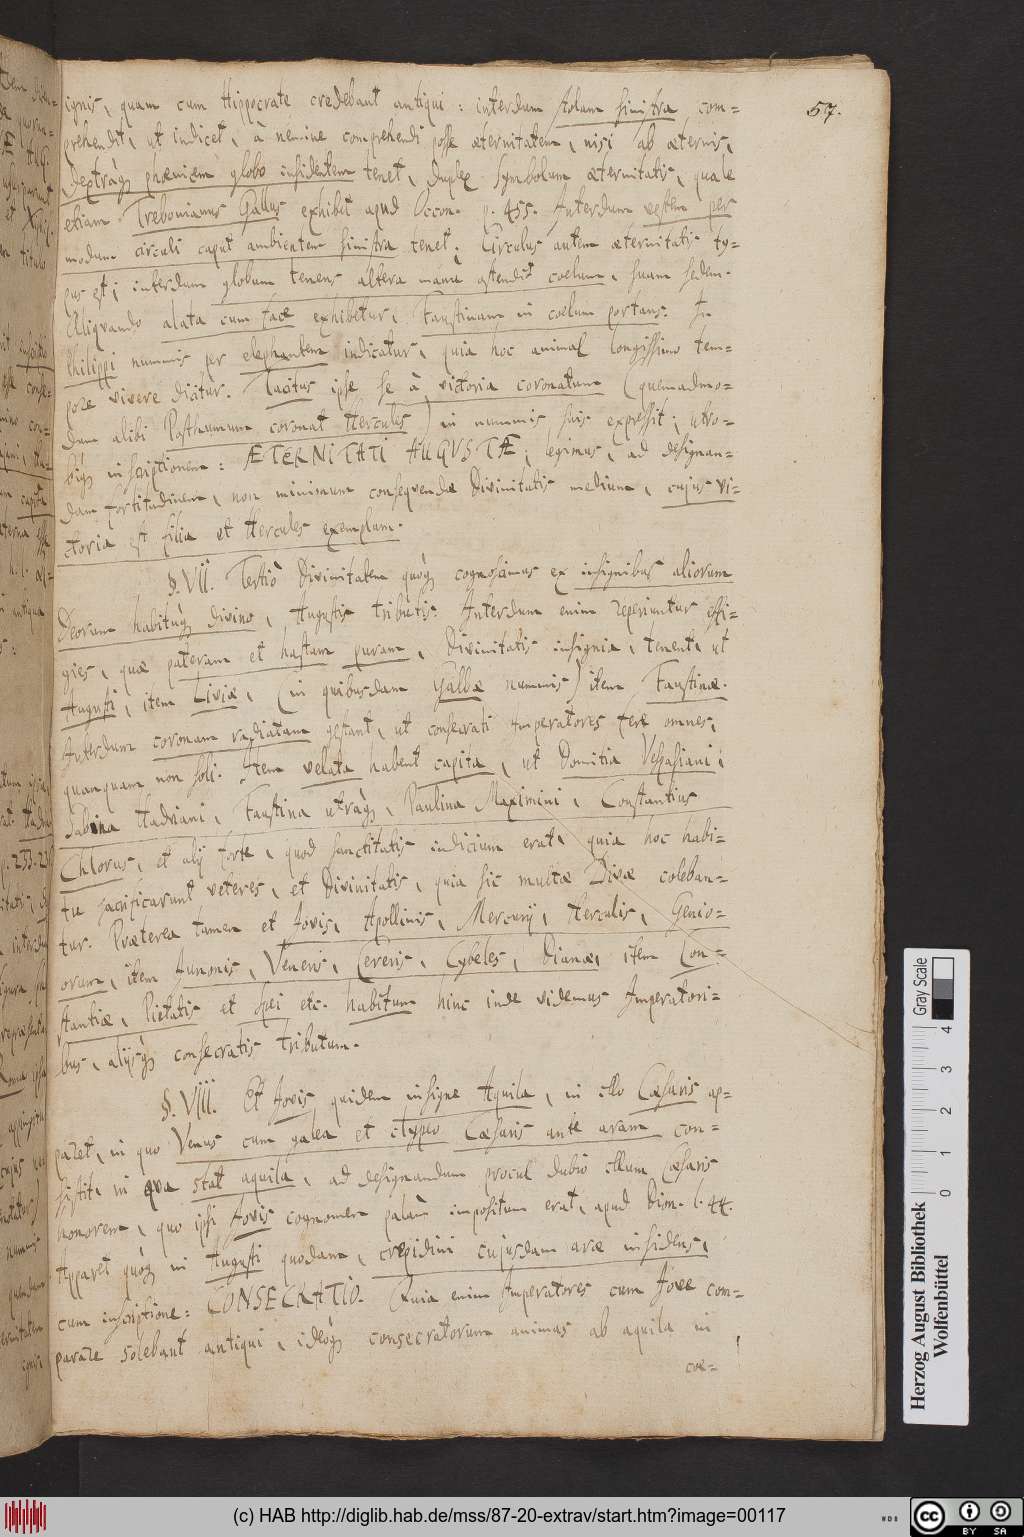 57.
ignis, quam cum Hippocrate credebant antiqui: interdum stolam sinistra com=
prehendit, ut indicet, à nemine comprehendi posse æternitatem, nisi ab æternis,
dextráq; phœnicem globo insidentem tenet, duplex symbolum æternitatis, quale
etiam Trebonianus Gallus exhibet apud Occon. p. 455. Interdum vestem per
modum circuli caput ambientem sinistra tenet. Circulus autem æternitatis ty=
pus est; interdum globum tenens altera manu ostendit coelum, suam sedem.
Aliquando alata cum face exhibetur, Faustinam in coelum portans. In
Philippi nummis per elephantem indicatur, quia hoc animal longissimo tem=
pore vivere dicitur. Tacitus ipse se à victoria coronatum (quemadmo=
dum alibi Posthumum coronat Hercules) in nummis suis expressit; utro=
biq; inscriptionem: ÆTERNITATI AUGUSTÆ, legimus, ad designan=
dam fortitudinem, non minimum consequendæ Divinitatis medium, cujus vi=
ctoria est filia et Hercules exemplum.
§. VII. Tertiò Divinitatem quóq; cognoscimus ex insignibus aliorum
Deorum habitúq; divino, Augustis tributis. Interdum enim reperiuntur effi=
gies, quæ pateram et hastam puram, Divinitatis insignia, tenent, ut
Augusti, item Liviæ, (in quibusdam Galbæ nummis) item Faustinæ.
Interdum coronam radiatam gestant, ut consecrati Imperatores fere omnes,
quanquam non soli. Item velata habent capita, ut Domitia Vespasiani;
Sabina Hadriani, Faustina utráq;, Paulina Maximini, Constantius
Chlorus, et alij forte, quod sanctitatis indicium erat, quia hoc habi=
tu sacrificarunt veteres, et Divinitatis, quia sic multæ Divæ coleban=
tur. Præterea tamen et Jovis, Apollinis, Mercurij, Herculis, Genio=
orum, item Junonis, Veneris, Cereris, Cybeles, Dianæ, item Con=
stantiæ, Pietatis et Spei etc. habitum hinc inde videmus Imperatori=
bus, alijsq; consecratis tributum.
§. VIII. Et Jovis quidem insigne Aquila, in illo Cæsaris ap=
paret, in quo Venus cum galea et clypeo Cæsaris ante aram con=
sistit, in qua stat aquila, ad designandum procul dubio illum Cæsaris
honorem, quo ipsi Jovis cognomen palàm impositum erat, apud Dion. l. 44.
Apparet quóq; in Augusti quodam, crepidini cujusdam aræ insidens,
cum inscriptione: CONSECRATIO. Quia enim Imperatores cum Jove com=
parare solebant antiqui, ideóq; consecratorum animas ab aquila in
coe=
Gray Scale
0 1 2 3 4
Herzog August Bibliothek
Wolfenbüttel
(c) HAB http://diglib.hab.de/mss/87-20-extrav/start.htm?image=00117
cc BY SA